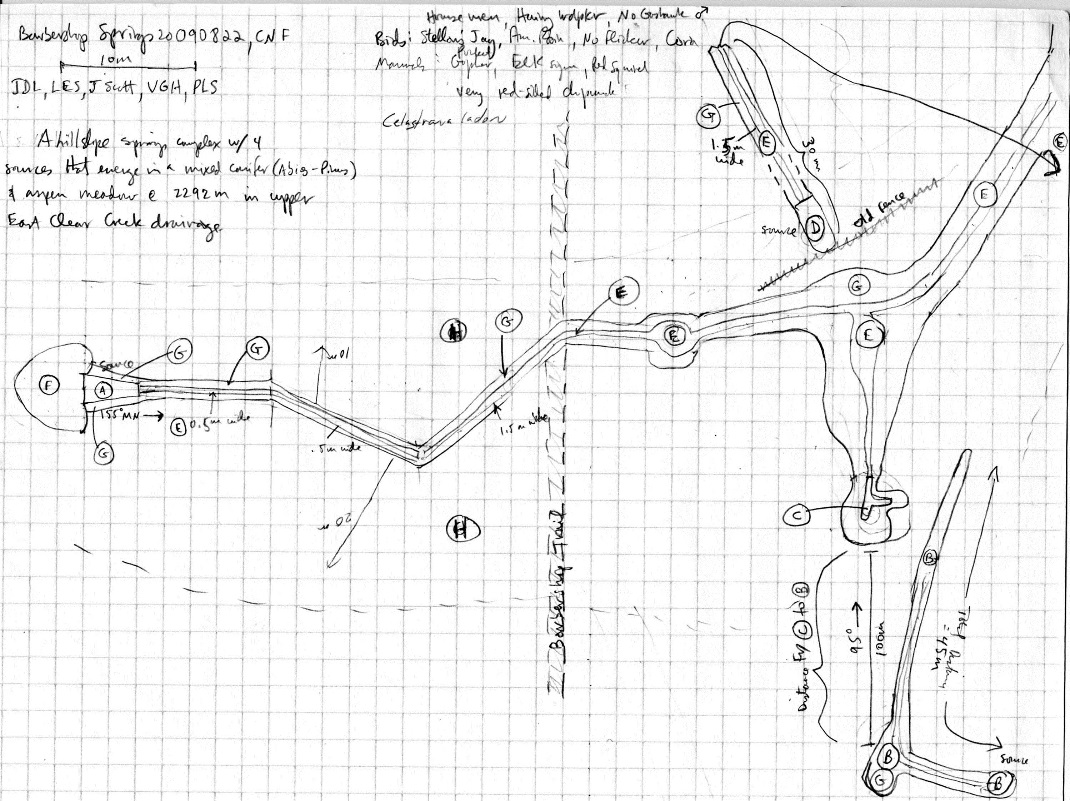 Barbershop Springs 20090822, CNF
10m
JDL, LES, J Scott, VGH, PLS
A hillslope springs complex w/ 4
sources that emerge in a mixed conifer (Abies-Pinus)
& aspen meadow @ 2292 m in upper
East Clear Creek drainage
House wren, Hairy wdpkr, No Goshawk ♂
Birds: Stellar's Jay, Am. Robin, No Flicker, Cora
Pocket
Mammals: Gopher, Elk sign, Red Squirrel
very red-sided chipmunk
G
1.5m
wide
E
30m
source
D
old fence
E
E
G
E
E
G
H
source
G
G
F
A
155° MN
E
0.5m wide
G
10m
.5m wide
20m
1.5m wide
H
Barbershop Trail
C
Distance C to B
95°
100m
B
Total
= 45m
B
G
source
B